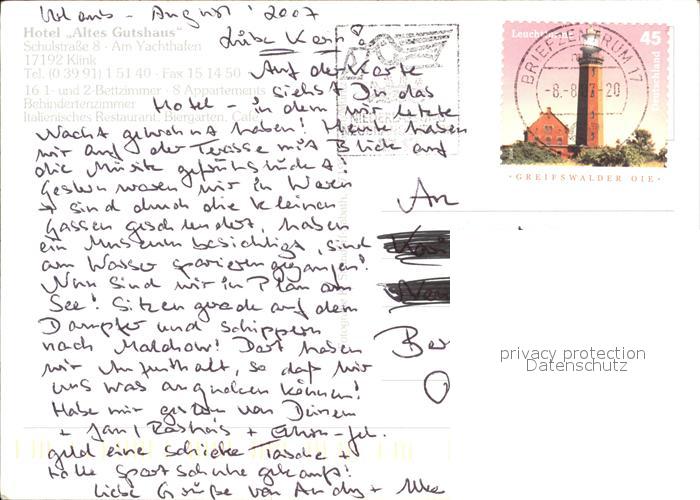 Urlaub - August 2007
Hotel „Altes Gutshaus"
Schulstraße 8 · Am Yachthafen
17192 Klink
Tel. (0 39 91) 1 51 40 · Fax 15 14 50
16 1- und 2-Bettzimmer · 8 Appartements
Behindertenzimmer
Italienisches Restaurant, Biergarten, Café
Auf der Karte
siehst Du das
Hotel - in dem wir letzte
Nacht gewohnt haben! Heute haben
wir auf der Terasse mit Blick auf
die Müritz gefrühstückt.
Gestern waren wir in Waren
+ sind durch die kleinen
Gassen geschlendert, haben
ein Museum besichtigt, sind
am Wasser spazierengegangen!
Nun sind wir in Plau am
See! Sitzen gerade auf dem
Dampfer und schippern
nach Malchow! Dort haben
wir Aufenthalt, so daß wir
uns was angucken können!
Habe mir gestern von Deinem
+ Jan /
geld eine schicke Tasche +
tolle Sportschuhe gekauft!
Liebe Grüße von Andy +
An
Ber
Leuchttürme
45
Deutschland
BRIEFZENTRUM 17
-8.-8.07-20
· GREIFSWALDER OIE ·
privacy protection
Datenschutz